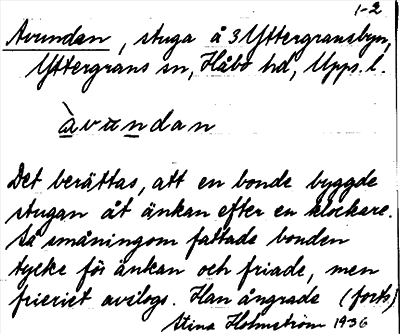 1-2
Avundan, stuga å 3 Yttergransbyn,
Yttergrans sn, Håbo hd, Upps. l.
àvundan
Det berättas, att en bonde byggde
stugan åt änkan efter en klockare.
Så småningom fattade bonden
tycke för änkan och friade, men
frieriet avslogs. Han ångrade (forts)
Stina Holmström 1936